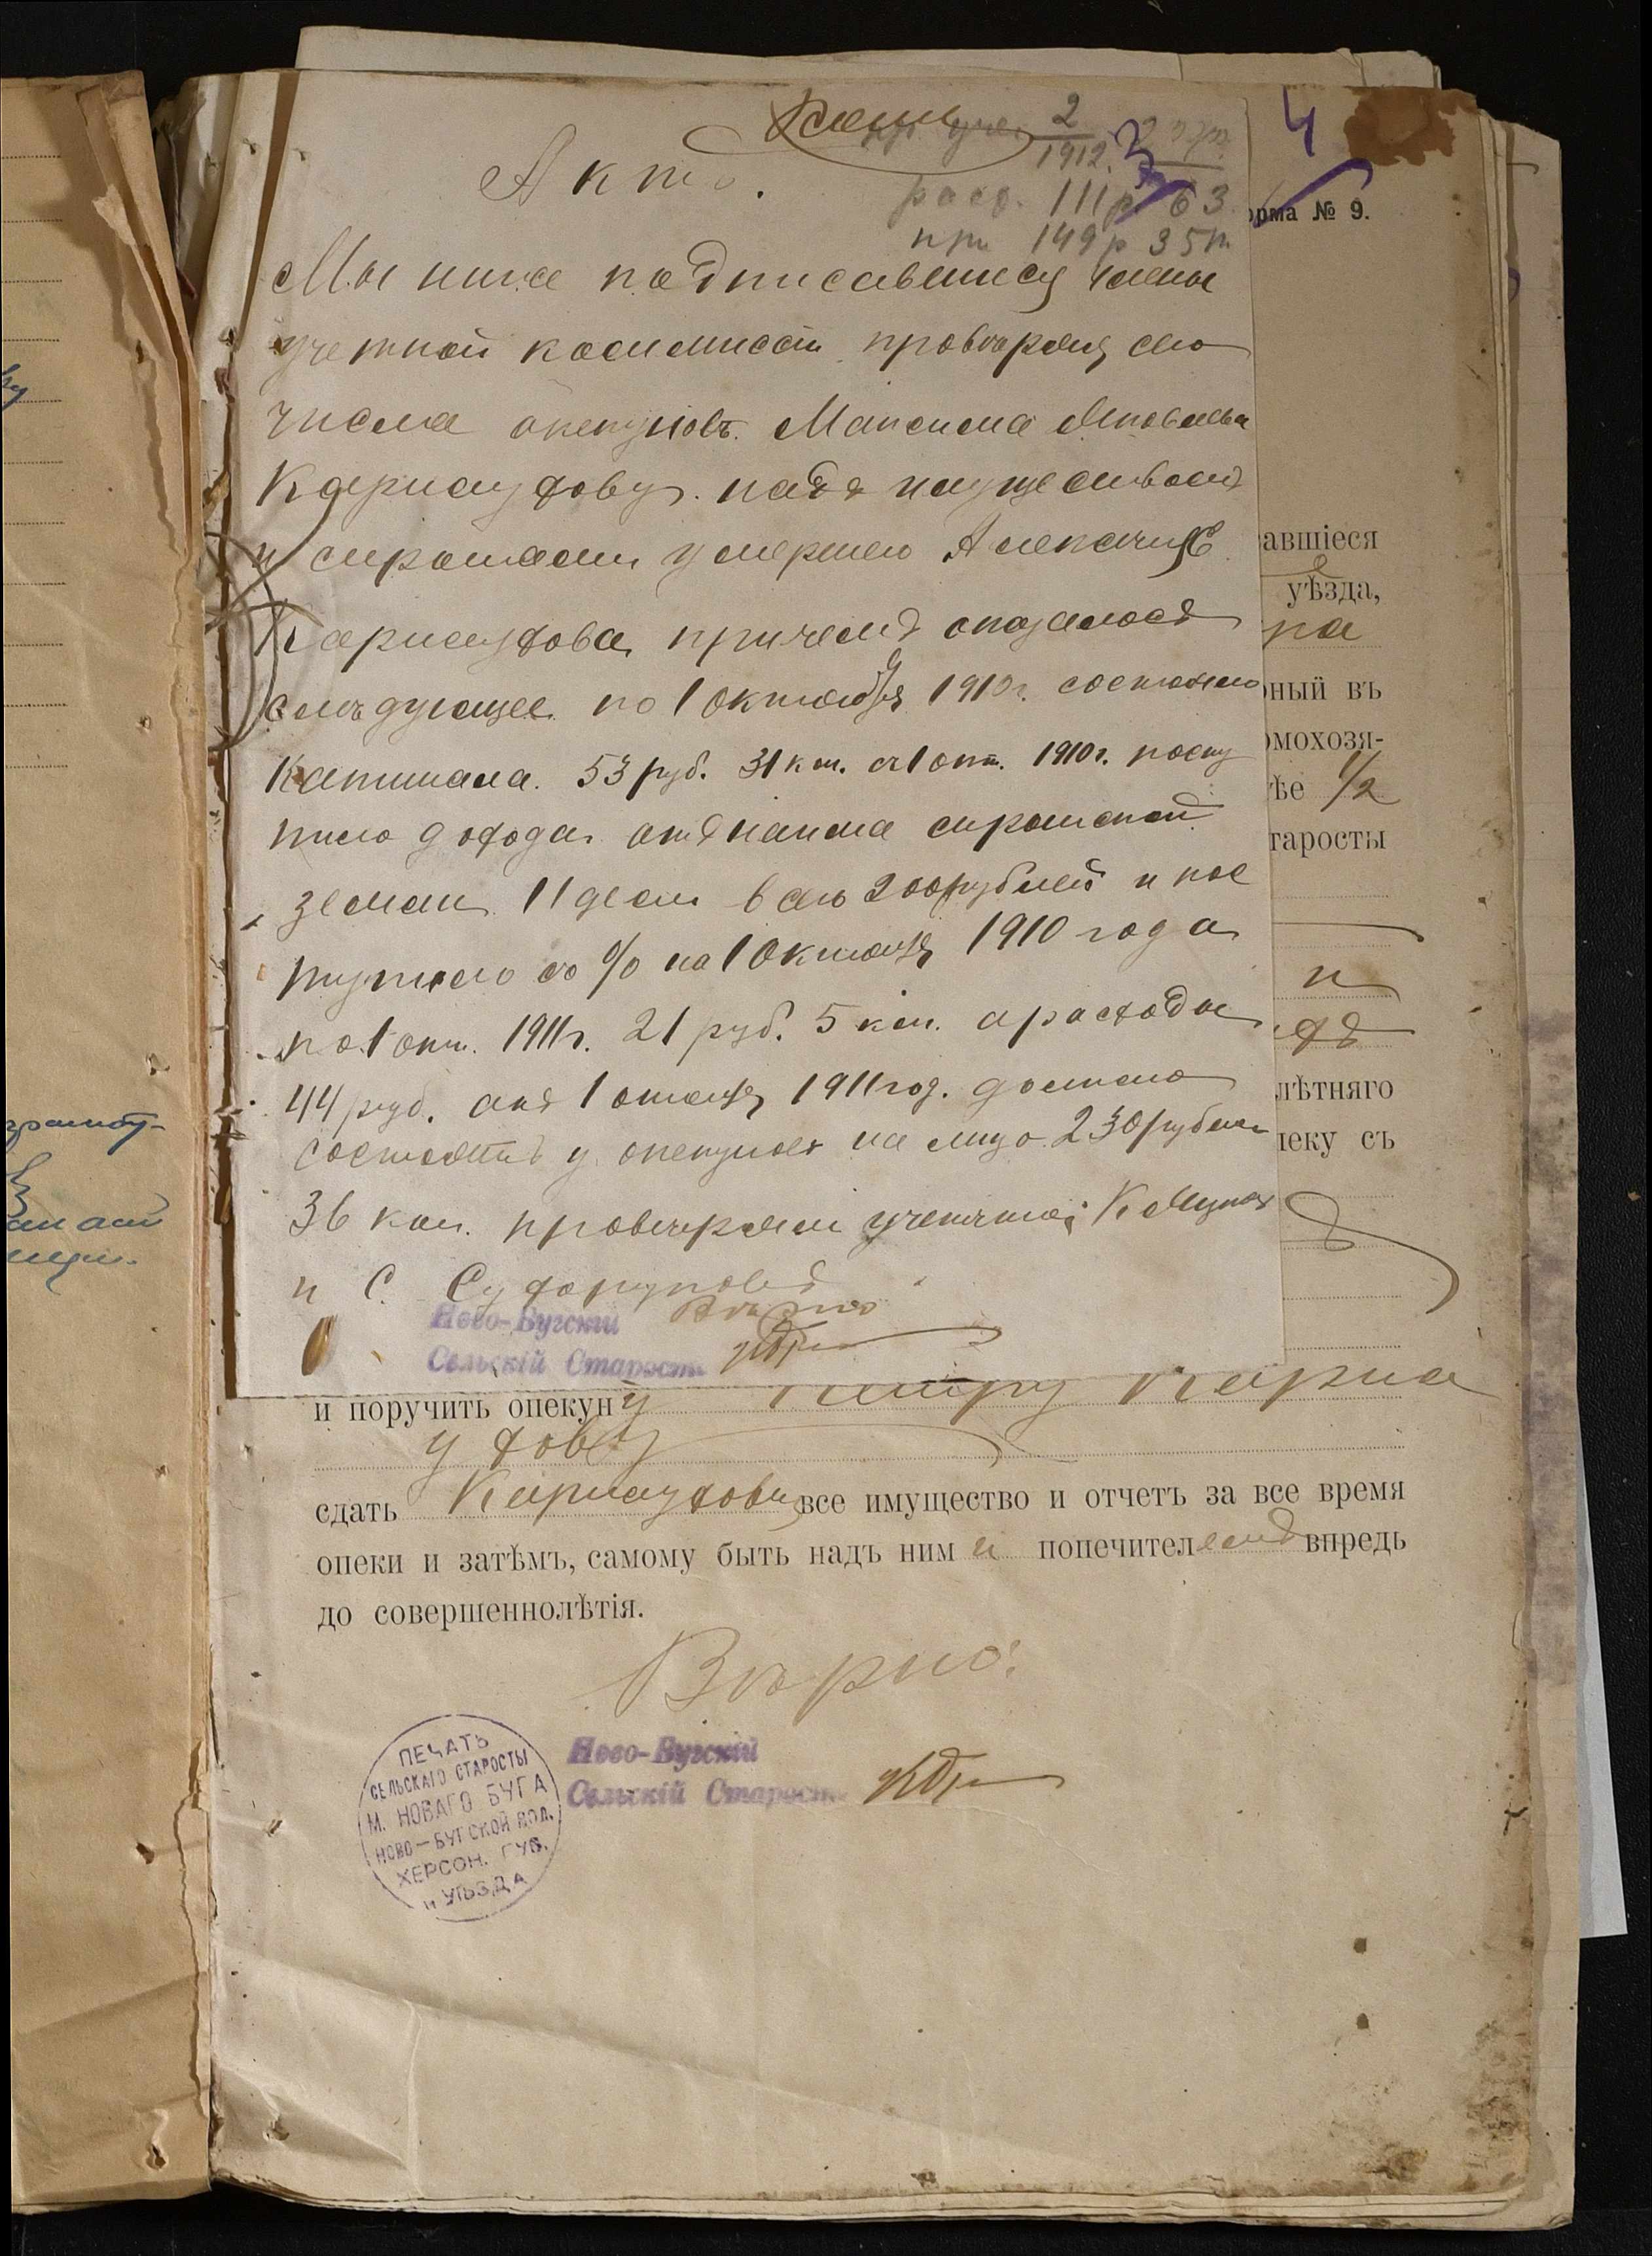 Копия
2
1912.
4
Актъ.
расх. 111 р 63
при 149 р 35 к
орма № 9.
Мы ниже подписавшиеся члены
учетной коммисіи провѣряя сего
числа опекуновъ Максима Яковлева
Карнаухову. надъ имуществомъ
и сиротами умершего Алексея
Карнаухова, причемъ оказалось
слѣдующее. по 1 октября 1910 г. состояло
Капитала. 53 руб. 31 коп. съ 1 окт. 1910 г. посту
пило дохода отъ найма сиротской
земли 11 дес. всего 200 рублей и пос
тупило со % на 1 Октября 1910 года
по 1 окт. 1911 г. 21 руб. 5 коп. а расходы
44 руб. отъ 1 октября 1911 год. должно
состоять у опекуновъ на лицо 230 рублей
36 коп. провѣряли учетчики К
и С.
Ново-Бугскій Вѣрно
Сельскій Староста
авшіеся
уѣзда,
ра
ный въ
омохозя-
ѣе 1/2
таросты
и
лѣтняго
пеку съ
и поручить опекуну Петру Карна
ухову
сдать Карнаухову все имущество и отчетъ за все время
опеки и затѣмъ, самому быть надъ ним и попечителемъ впредь
до совершеннолѣтія.
Вѣрно:
Ново-Бугскій
Сельскій Староста
ПЕЧАТЬ
СЕЛЬСКАГО СТАРОСТЫ
М. НОВАГО БУГА
НОВО-БУГСКОЙ ВОЛ.
ХЕРСОН. ГУБ.
и УѢЗДА